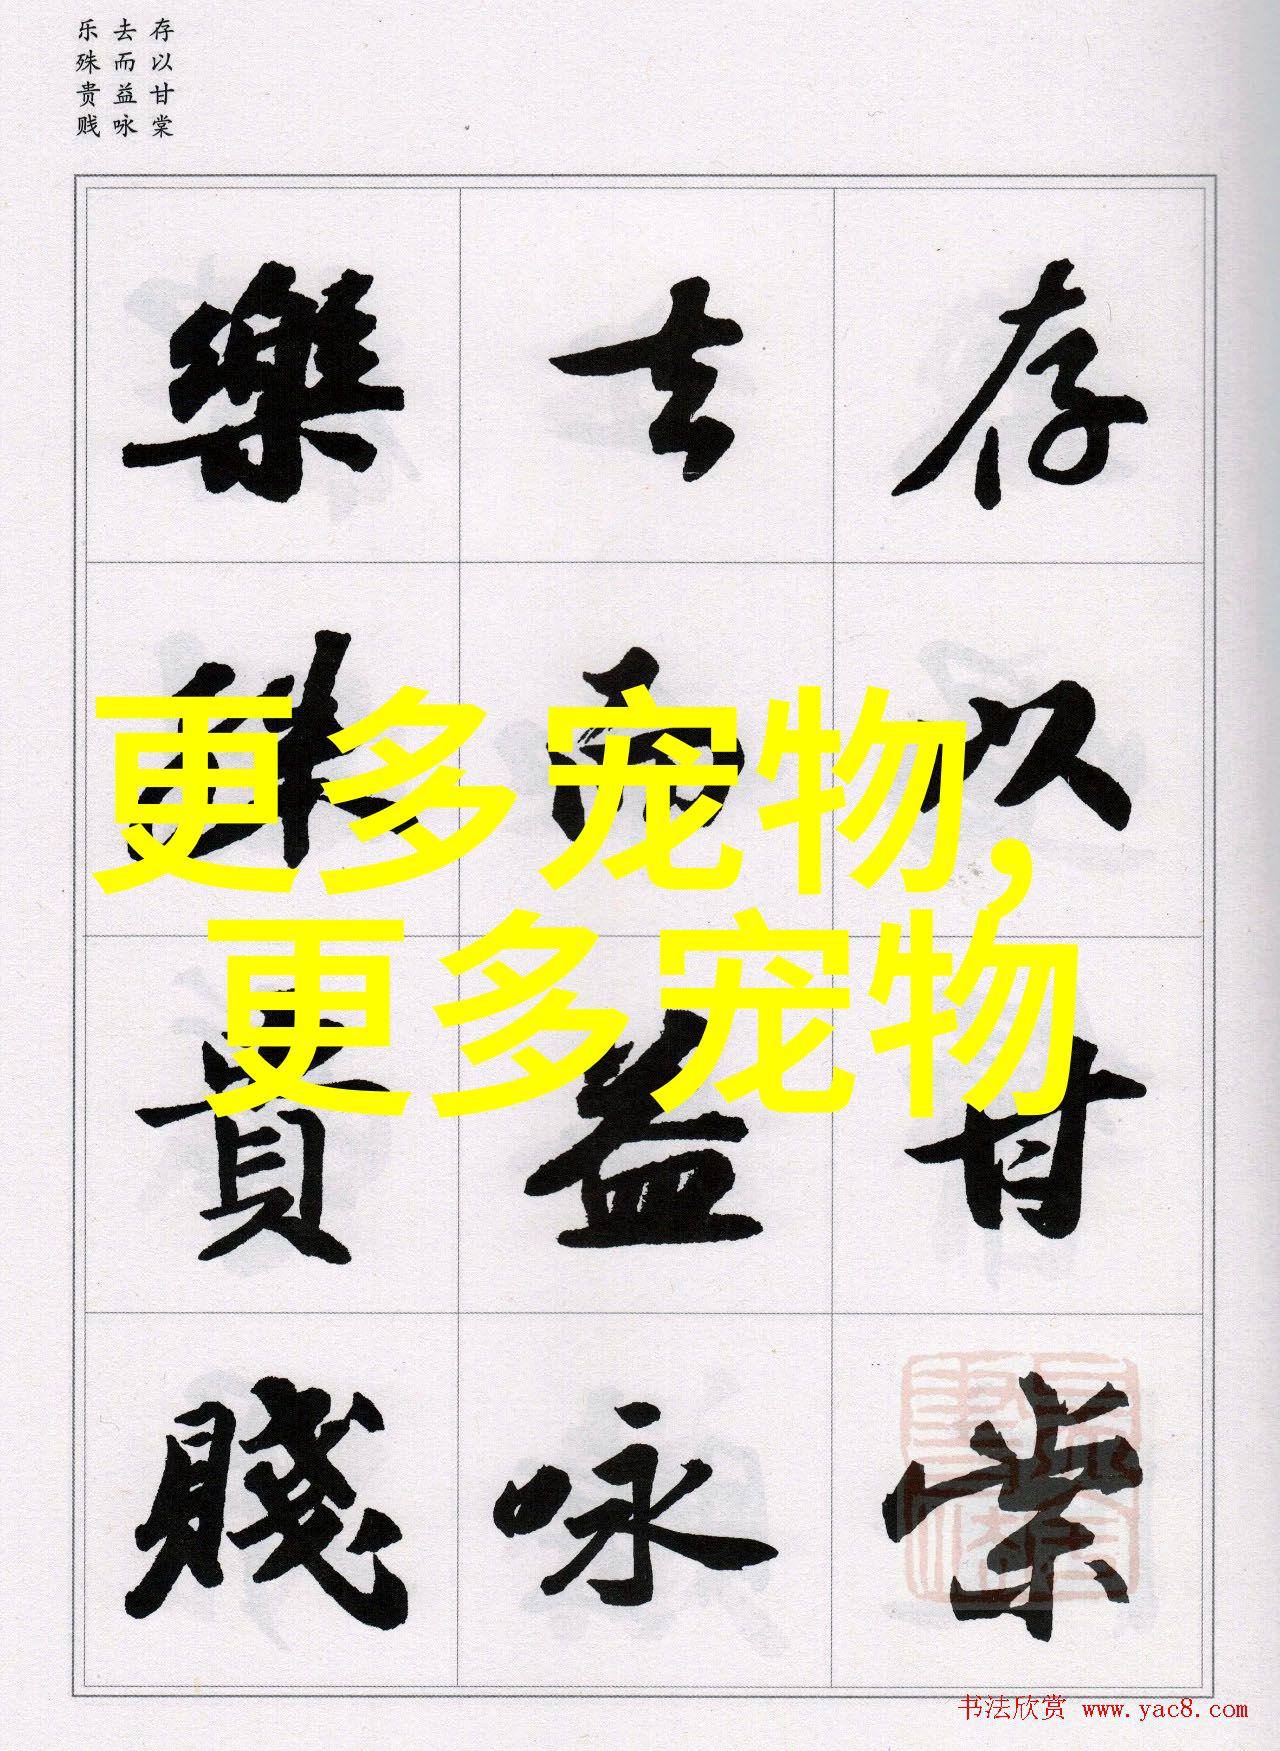 存以甘棠
去而益咏
乐殊贵贱
存以甘棠
去而益咏
樂殊貴賤
更多宠物，
更多宠物
书法欣赏 www.yac8.com